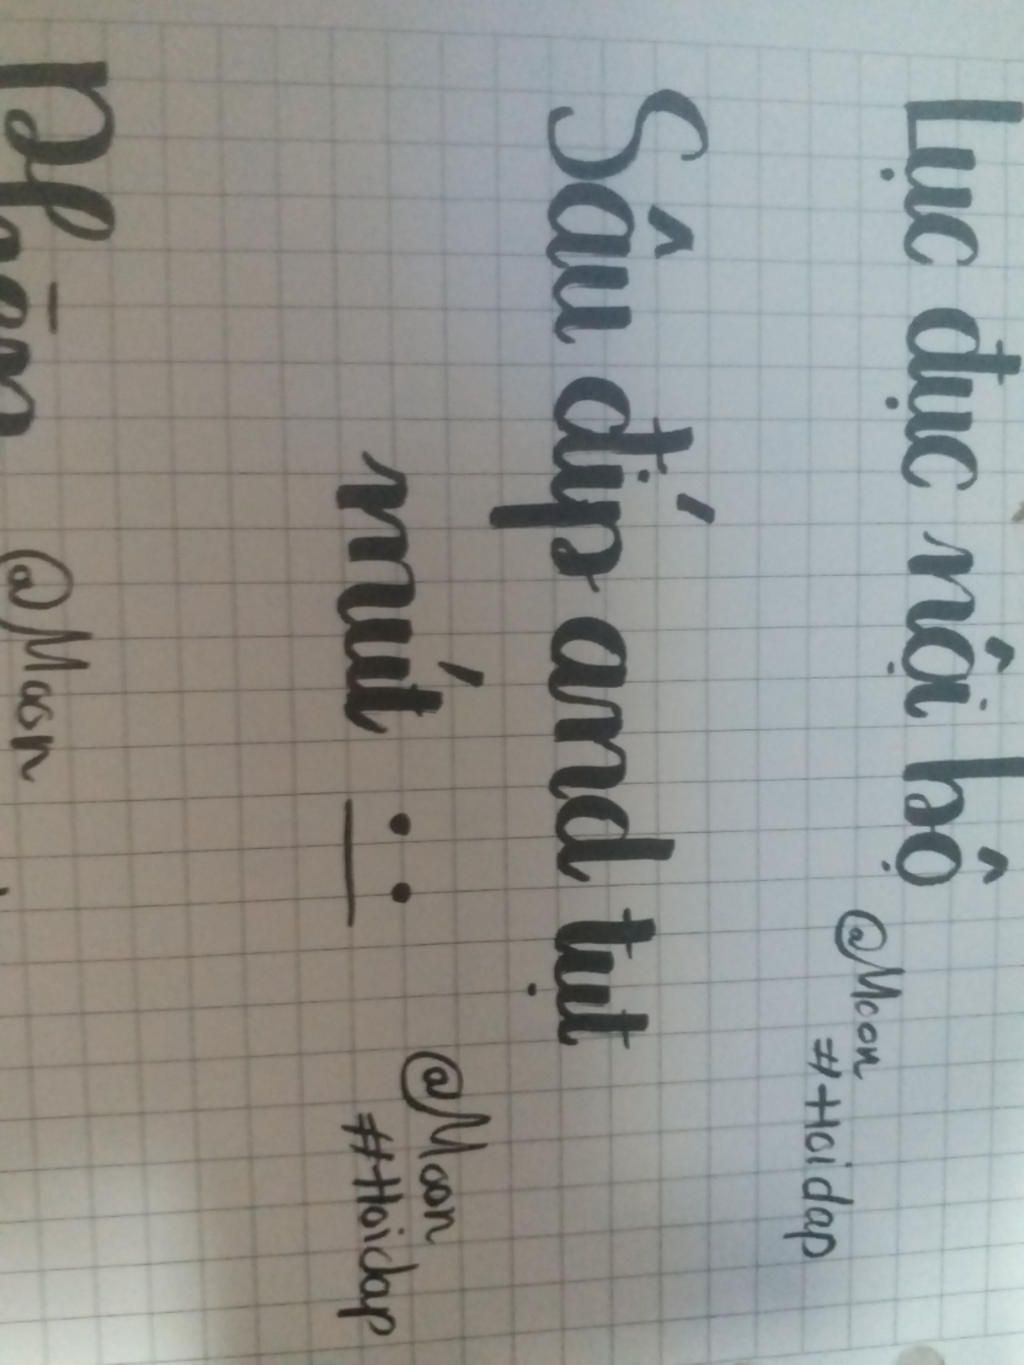 Lục đục nội bộ
@Moon
#Hoidap
Sâu đíp and tụt
mút :
@Moon
#Hoidap
@Moon